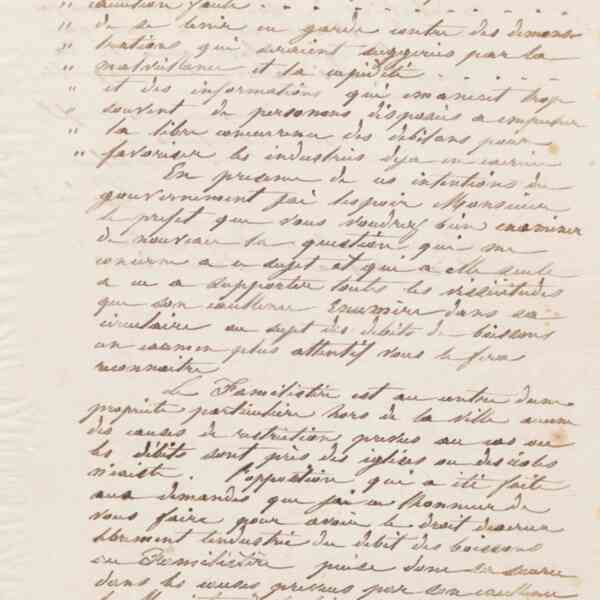 " caution faute . . . . . . . .
" de se tenir en garde contre des démons
" trations qui seraient suggérées par la
" malveillance et la cupidité . . . . . .
" et des informations qui émanent trop
" souvent de personnes disposées a empêcher
" la libre concurrence des débitans pour
" favoriser les industries déja en exercice
En présence de ces intentions du
gouvernement j'ai l'espoir Monsieur
le préfet que vous voudrez bien examiner
de nouveau la question qui me
concerne a ce sujet et qui a elle seule
a eu a supporter toutes les vissicitudes
que son excellence Enumère dans sa
circulaire au sujet des débits de boissons
un examen plus attentif vous le fera
reconnaitre
Le Familistère est au centre d'une
propriété particulière hors de la ville aucune
des causes de restriction prévues au cas ou
les débits sont près des églises ou des écoles
n'existe. l'opposition qui a été faite
aux demandes que j'ai eu l'honneur de
vous faire pour avoir le droit d'exercer
librement l'industrie du débit des boissons
au Familistère puise donc sa source
dans les causes prévues par son excellence